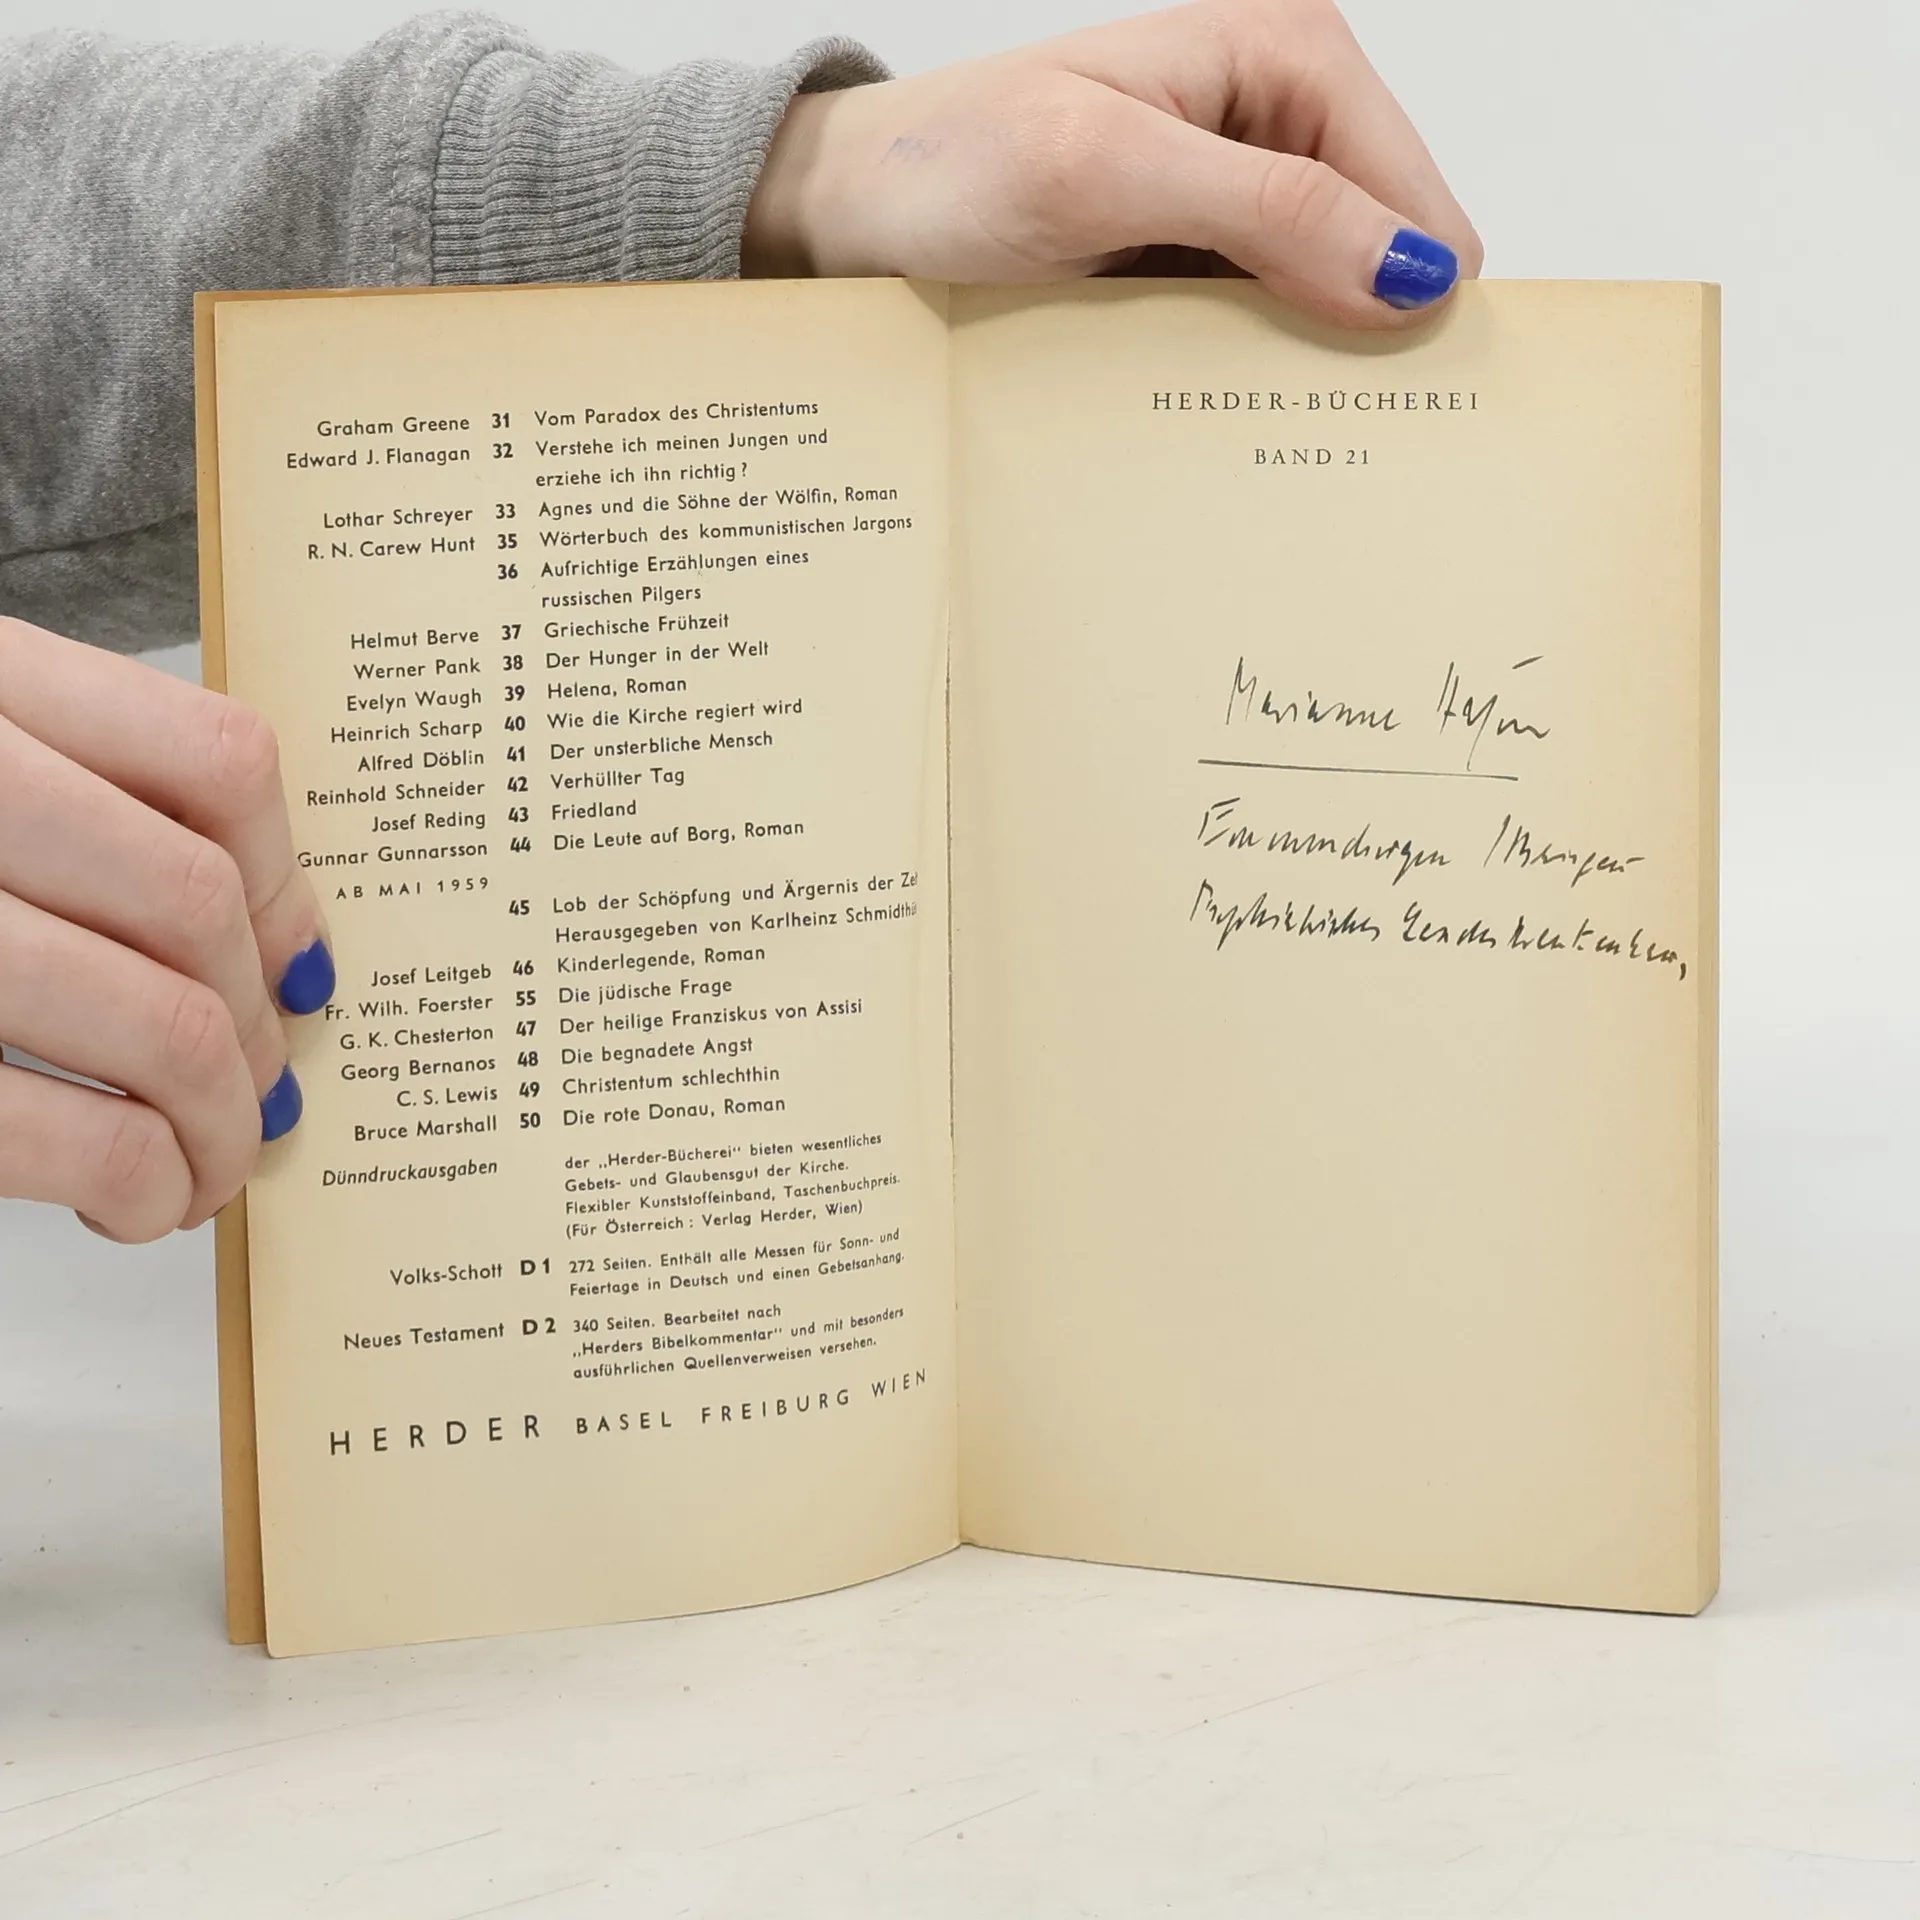 Graham Greene 31 Vom Paradox des Christentums
Edward J. Flanagan 32 Verstehe ich meinen Jungen und
erziehe ich ihn richtig?
Lothar Schreyer 33 Agnes und die Söhne der Wölfin, Roman
R. N. Carew Hunt 35 Wörterbuch des kommunistischen Jargons
36 Aufrichtige Erzählungen eines
russischen Pilgers
Helmut Berve 37 Griechische Frühzeit
Werner Pank 38 Der Hunger in der Welt
Evelyn Waugh 39 Helena, Roman
Heinrich Scharp 40 Wie die Kirche regiert wird
Alfred Döblin 41 Der unsterbliche Mensch
Reinhold Schneider 42 Verhüllter Tag
Josef Reding 43 Friedland
Gunnar Gunnarsson 44 Die Leute auf Borg, Roman
AB MAI 1959
45 Lob der Schöpfung und Ärgernis der
Herausgegeben von Karlheinz
Josef Leitgeb 46 Kinderlegende, Roman
Fr. Wilh. Foerster 55 Die jüdische Frage
G. K. Chesterton 47 Der heilige Franziskus von Assisi
Georg Bernanos 48 Die begnadete Angst
C. S. Lewis 49 Christentum schlechthin
Bruce Marshall 50 Die rote Donau, Roman
Dünndruckausgaben der „Herder-Bücherei“ bieten wesentliches
Gebets- und Glaubensgut der Kirche.
Flexibler Kunststoffeinband, Taschenbuchpreis.
(Für Österreich: Verlag Herder, Wien)
Volks-Schott D 1 272 Seiten. Enthält alle Messen für Sonn- und
Feiertage in Deutsch und einen Gebetsanhang.
Neues Testament D 2 340 Seiten. Bearbeitet nach
„Herders Bibelkommentar“ und mit besonders
ausführlichen Quellenverweisen versehen.
HERDER BASEL FREIBURG WIEN
HERDER-BÜCHEREI
BAND 21
Marianne
Emmendingen